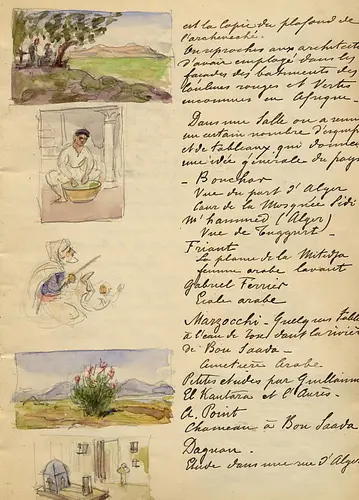 est la copie du plafond de
l'archevêché.
On reproche aux architectes
d'avoir employé dans les
façades des batiments des
couleurs rouges et vertes
inconnues en Afrique
Dans une salle on a réuni
un certain nombre d'esquisses
et de tableaux qui donnent
une idée générale du pays
- Bouchor
Vue du port d'Alger
Cour de la Mosquée Sidi
M'hammed (Alger)
Vue de Tuggurt -
Friant
La plaine de la Mitidja
femme arabe lavant
Gabriel Ferrier
Ecole arabe
Marzocchi - Quelques tabl
à l'eau de dans la rivière
de Bou Saada -
Cimetière Arabe
Petites etudes par Guillaum
El Kantara et l'Aurès -
A. Point
Chameau à Bou Saada
Dagnan -
Etude dans une rue d'Alger